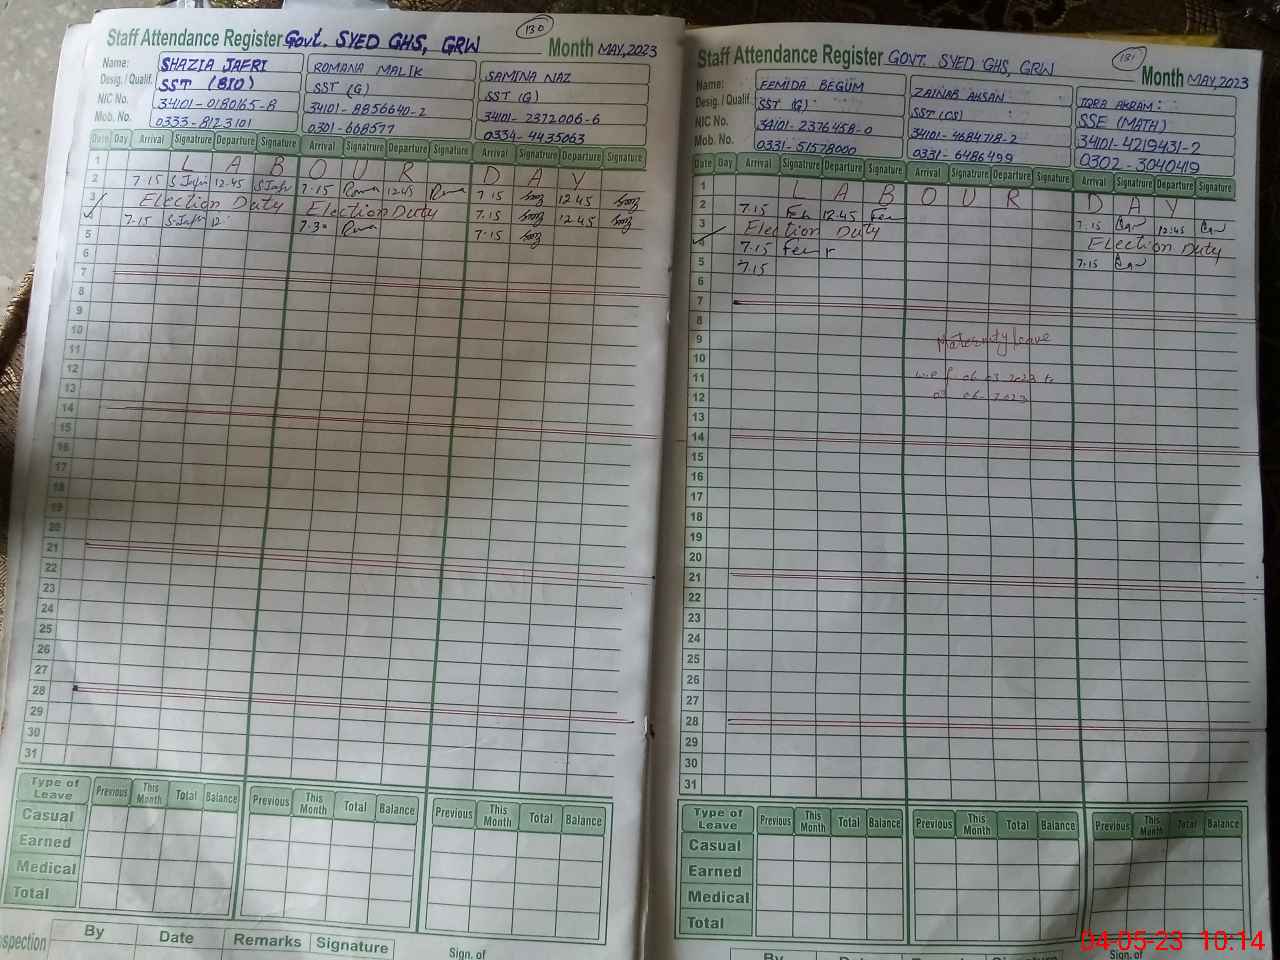 130
Staff Attendance Register Govt. SYED GHS, GRW Month MAY, 2023
Name: SHAZIA JAFRI ROMANA MALIK SAMINA NAZ
Desig. / Qualif. SST (BIO) SST (G) SST (G)
NIC No. 34101-0180165-8 34101-8856640-2 34101-2372006-6
Mob. No. 0333-8123101 0301-668577 0334-4435063
Date Day Arrival Signatrure Departure Signature Arrival Signatrure Departure Signature Arrival Signatrure Departure Signature
1 L A B O U R D A Y
2 7.15 S Jafri 12.45 S Jafri 7.15 12.45 7.15 12.45
3 Election Duty Election Duty 7.15 12.45
7.15 S. Jafri 12 7.30 7.15
5
6
7
8
9
10
11
12
13
14
15
16
17
18
19
20
21
22
23
24
25
26
27
28
29
30
31
Type of Leave Previous This Month Total Balance Previous This Month Total Balance Previous This Month Total Balance
Casual
Earned
Medical
Total
spection By Date Remarks Signature Sign. of
131
Staff Attendance Register GOVT. SYED GHS, GRW Month MAY, 2023
Name: FEMIDA BEGUM ZAINAB AHSAN IQRA AKRAM
Desig. / Qualif. SST (G) SST (CS) SSE (MATH)
NIC No. 34101-2376458-0 34101-4684718-2 34101-4219431-2
Mob. No. 0331-51578000 0331-6486499 0302-3040419
Date Day Arrival Signatrure Departure Signature Arrival Signatrure Departure Signature Arrival Signatrure Departure Signature
1 L A B O U R D A Y
2 7.15 12.45 7.15 12.45
3 Election Duty Election Duty
4 7.15 7.15
5 7.15
6
7
8
9 Maternity leave
10
11 w.e.f. 06.03.2023 to
12 06-2023
13
14
15
16
17
18
19
20
21
22
23
24
25
26
27
28
29
30
31
Type of Leave Previous This Month Total Balance Previous This Month Total Balance Previous This Month Total Balance
Casual
Earned
Medical
Total
By Sign. of
04-05-23 10:14